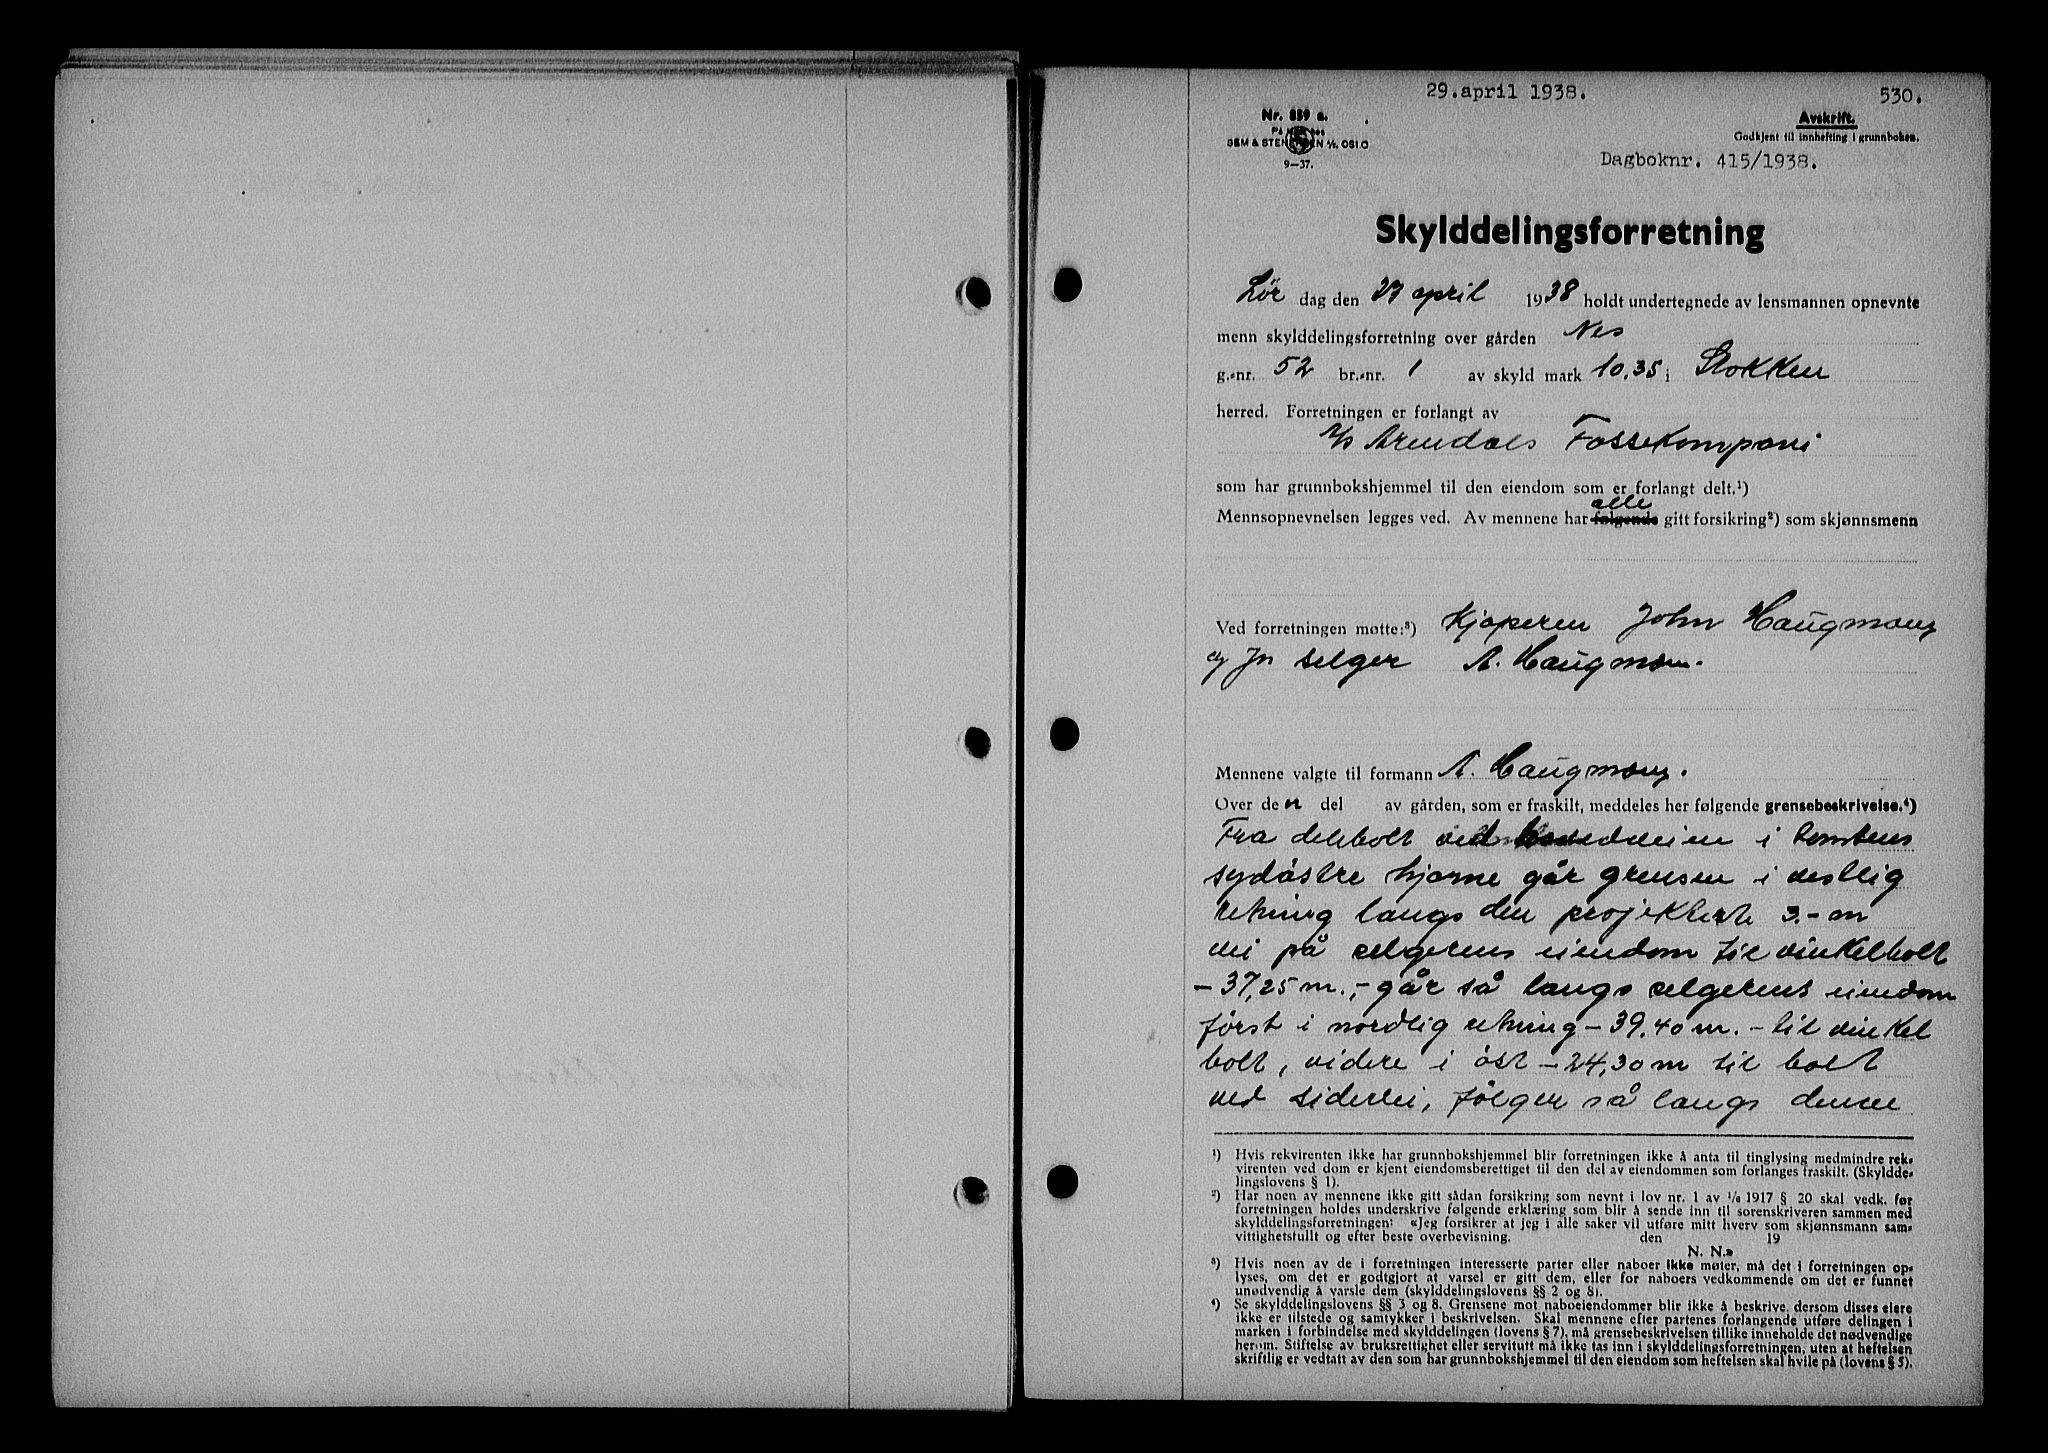 29.april 1938.
530.
Nr. 859 a.
På lager hos
SEM & STENERSEN A/S, OSLO
9—37.
Avskrift.
Godkjent til innhefting i grunnboken.
Dagboknr. 415/1938.
Skylddelingsforretning
Lør dag den 27 april 1938 holdt undertegnede av lensmannen opnevnte
menn skylddelingsforretning over gården Nes
g.-nr. 52 br.-nr. 1 av skyld mark 10.35 i Stokken
herred. Forretningen er forlangt av
A/S Arendals Fossekompani
som har grunnbokshjemmel til den eiendom som er forlangt delt.¹)
alle
Mennsopnevnelsen legges ved. Av mennene har følgende gitt forsikring²) som skjønnsmenn
Ved forretningen møtte:³) Kjøperen John Haugmoen
og for selger A. Haugmoen.
Mennene valgte til formann A. Haugmoen.
Over de n del av gården, som er fraskilt, meddeles her følgende grensebeskrivelse.⁴)
Fra delebolt ved hovedveien i tomtens
sydøstre hjørne går grensen i vestlig
retning langs den projekterte 3.- m
vei på selgerens eiendom til vinkelbolt
- 37,25 m.,- går så langs selgerens eiendom
først i nordlig retning - 39.40 m. - til vinkel
bolt, videre i øst - 24,30 m til bolt
ved sidevei, følger så langs denne
¹) Hvis rekvirenten ikke har grunnbokshjemmel blir forretningen ikke å anta til tinglysing medmindre rek-
virenten ved dom er kjent eiendomsberettiget til den del av eiendommen som forlanges fraskilt. (Skyldde-
lingslovens § 1).
²) Har noen av mennene ikke gitt sådan forsikring som nevnt i lov nr. 1 av 1/6 1917 § 20 skal vedk. før
forretningen holdes underskrive følgende erklæring som blir å sende inn til sorenskriveren sammen med
skylddelingsforretningen: «Jeg forsikrer at jeg i alle saker vil utføre mitt hverv som skjønnsmann sam-
vittighetsfullt og efter beste overbevisning. den 19
N. N.»
³) Hvis noen av de i forretningen interesserte parter eller naboer ikke møter, må det i forretningen op-
lyses, om det er godtgjort at varsel er gitt dem, eller for naboers vedkommende om det er funnet
unødvendig å varsle dem (skylddelingslovens §§ 2 og 8).
⁴) Se skylddelingslovens §§ 3 og 8. Grensene mot naboeiendommer blir ikke å beskrive, dersom disses eiere
ikke er tilstede og samtykker i beskrivelsen. Skal mennene efter partenes forlangende utføre delingen i
marken i forbindelse med skylddelingen (lovens § 7), må grensebeskrivelsen tillike inneholde det nødvendige
herom. Stiftelse av bruksrettighet eller servitutt må ikke tas inn i skylddelingsforretningen, uten at heftelsen
skriftlig er vedtatt av den som har grunnbokshjemmel til den eiendom som heftelsen skal hvile på (lovens § 5).